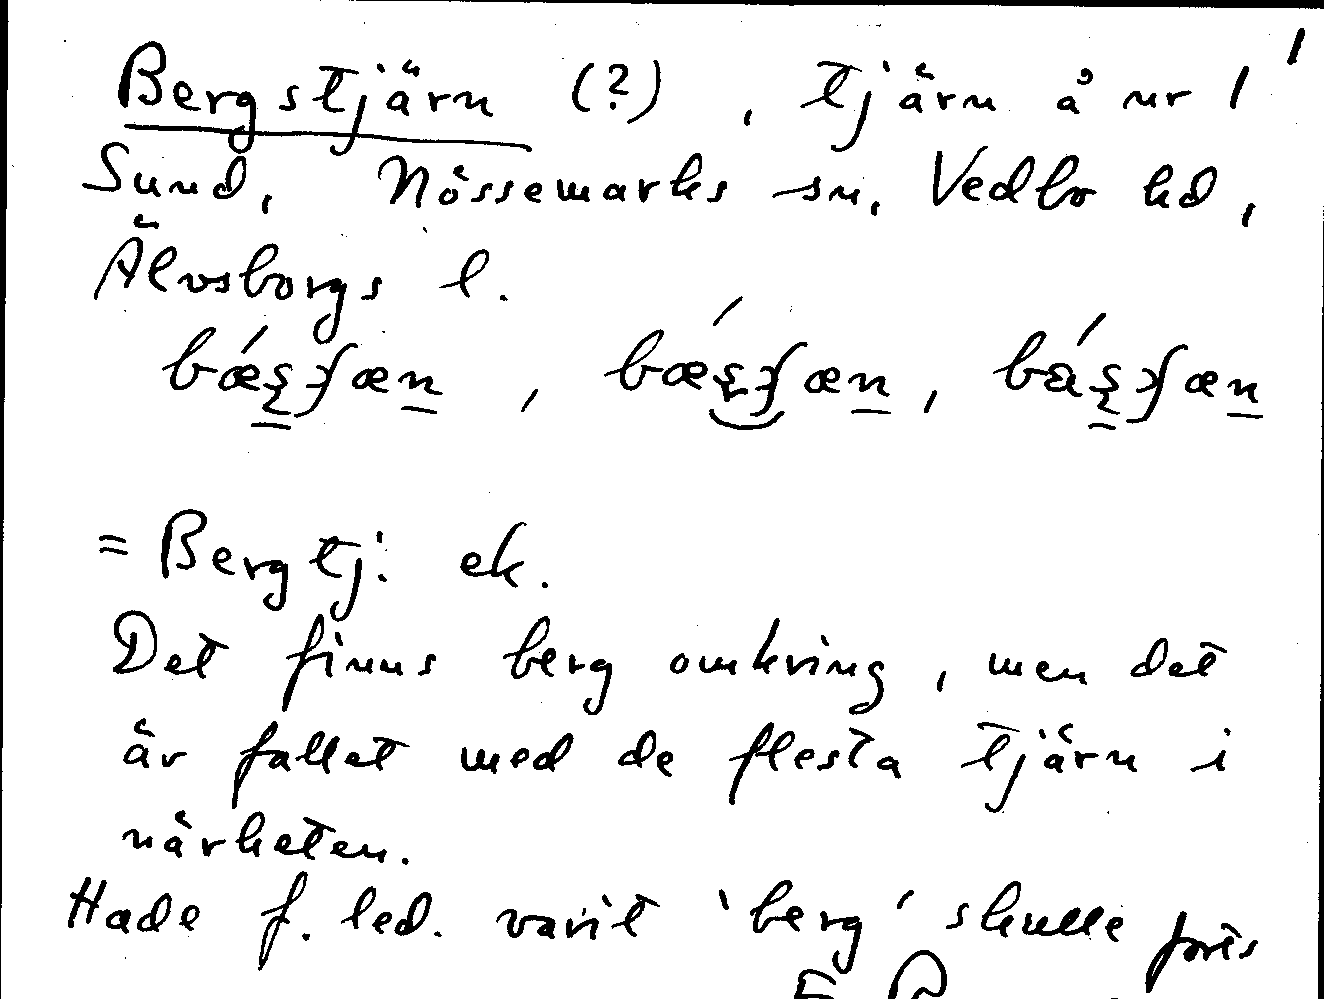 1
Bergstjärn (?), tjärn å nr 1
Sund, Nössemarks sn, Vedbo hd,
Älvsborgs l.
= Bergtj: ek.
Det finns berg omkring, men det
är fallet med de flesta tjärn i
närheten.
Hade f. led. varit 'berg' skulle forts